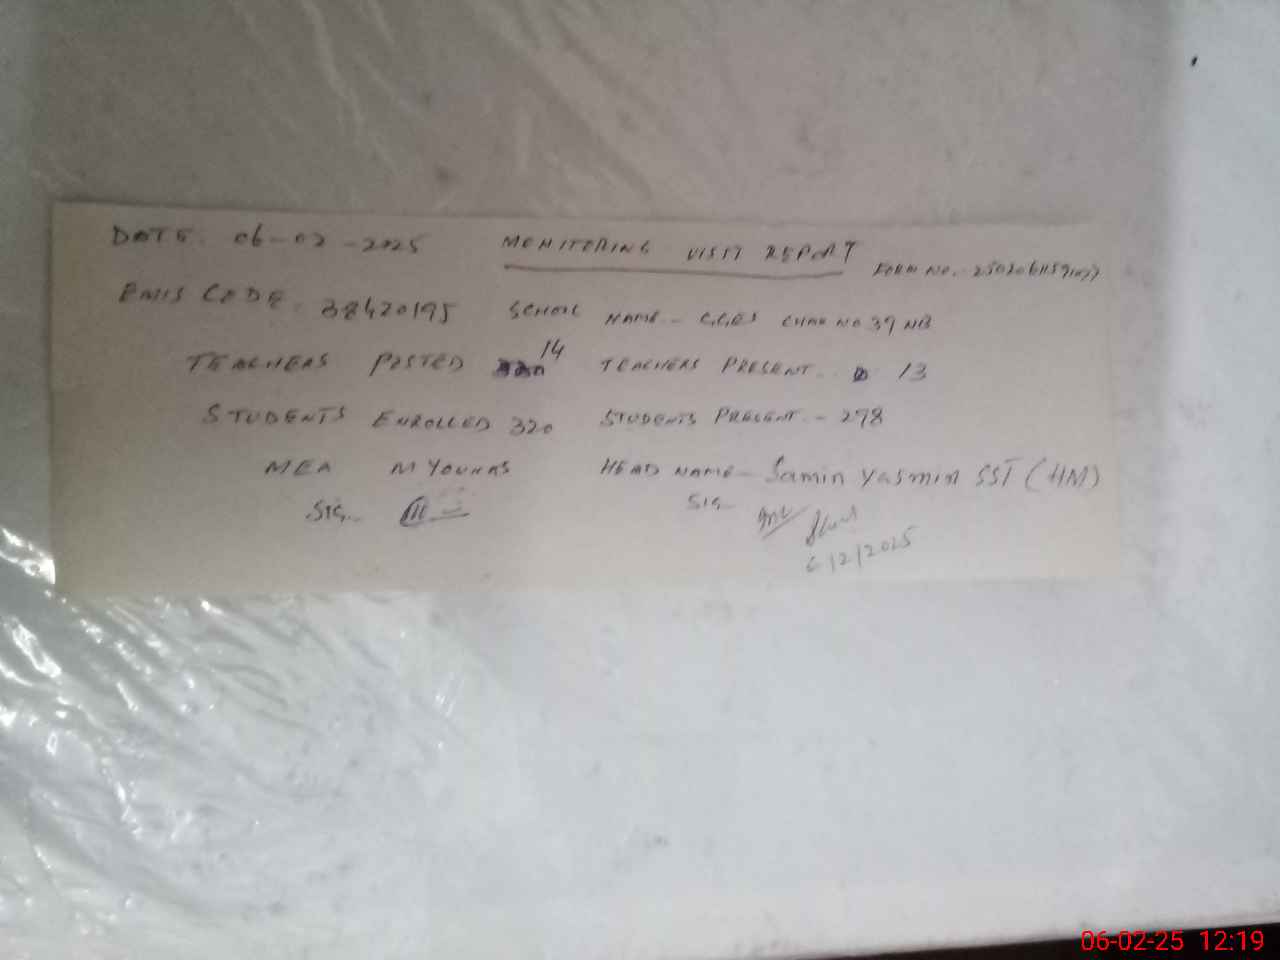 DATE. 06-02-2025 MONITORING VISIT REPORT
FORM NO.
EMIS CODE. 38420195 SCHOOL NAME - GGES CHAK NO 39 NB
TEACHERS POSTED 14 TEACHERS PRESENT. 13
STUDENTS ENROLLED 320 STUDENTS PRESENT. - 278
MEA M YOUNAS HEAD NAME - Samin Yasmin SST (HM)
SIG. SIG
6/2/2025
06-02-25 12:19